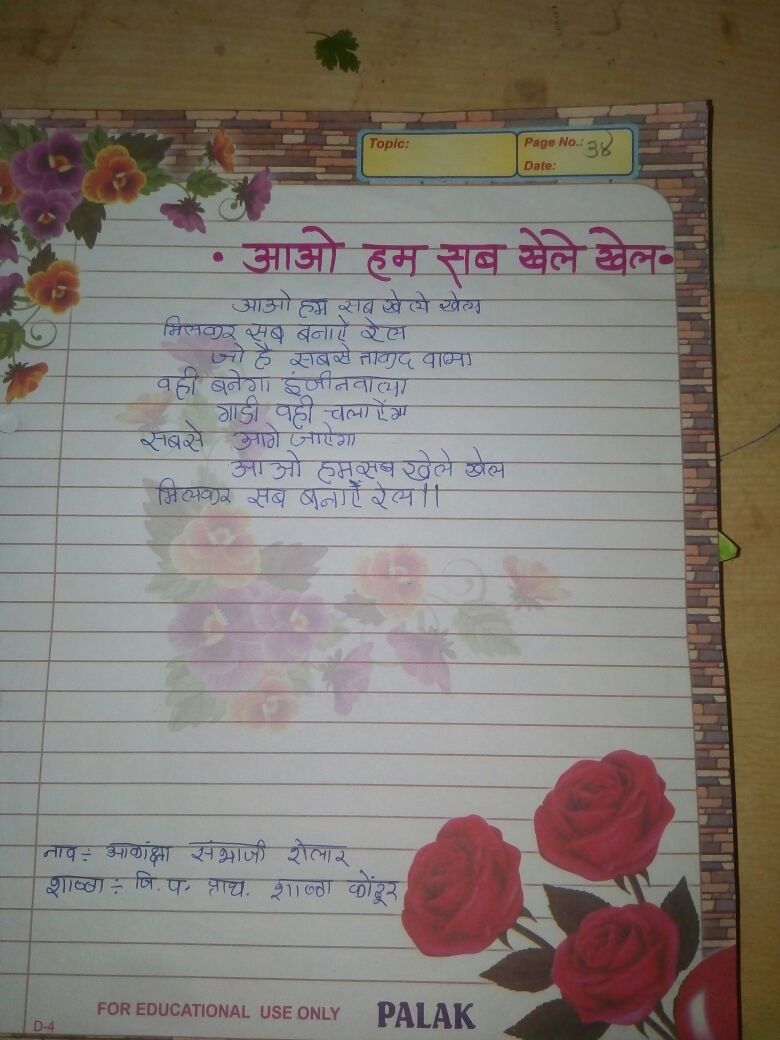 Topic:
Page No.: 38
Date:
• आओ हम सब खेले खेल•
आओ हम सब खेले खेल
मिलकर सब बनाऐ रेल
जो है सबसे ताकद वाला
वही बनेगा इंजीनवाला
गाडी वही चलाऐंगा
सबसे आगे जाऐगा
आओ हम सब खेले खेल
मिलकर सब बनाऐं रेल॥
नाव :- आकांक्षा संभाजी शेलार
शाळा :- जि. प. प्राथ. शाळा कोंढूर
FOR EDUCATIONAL USE ONLY
PALAK
D-4